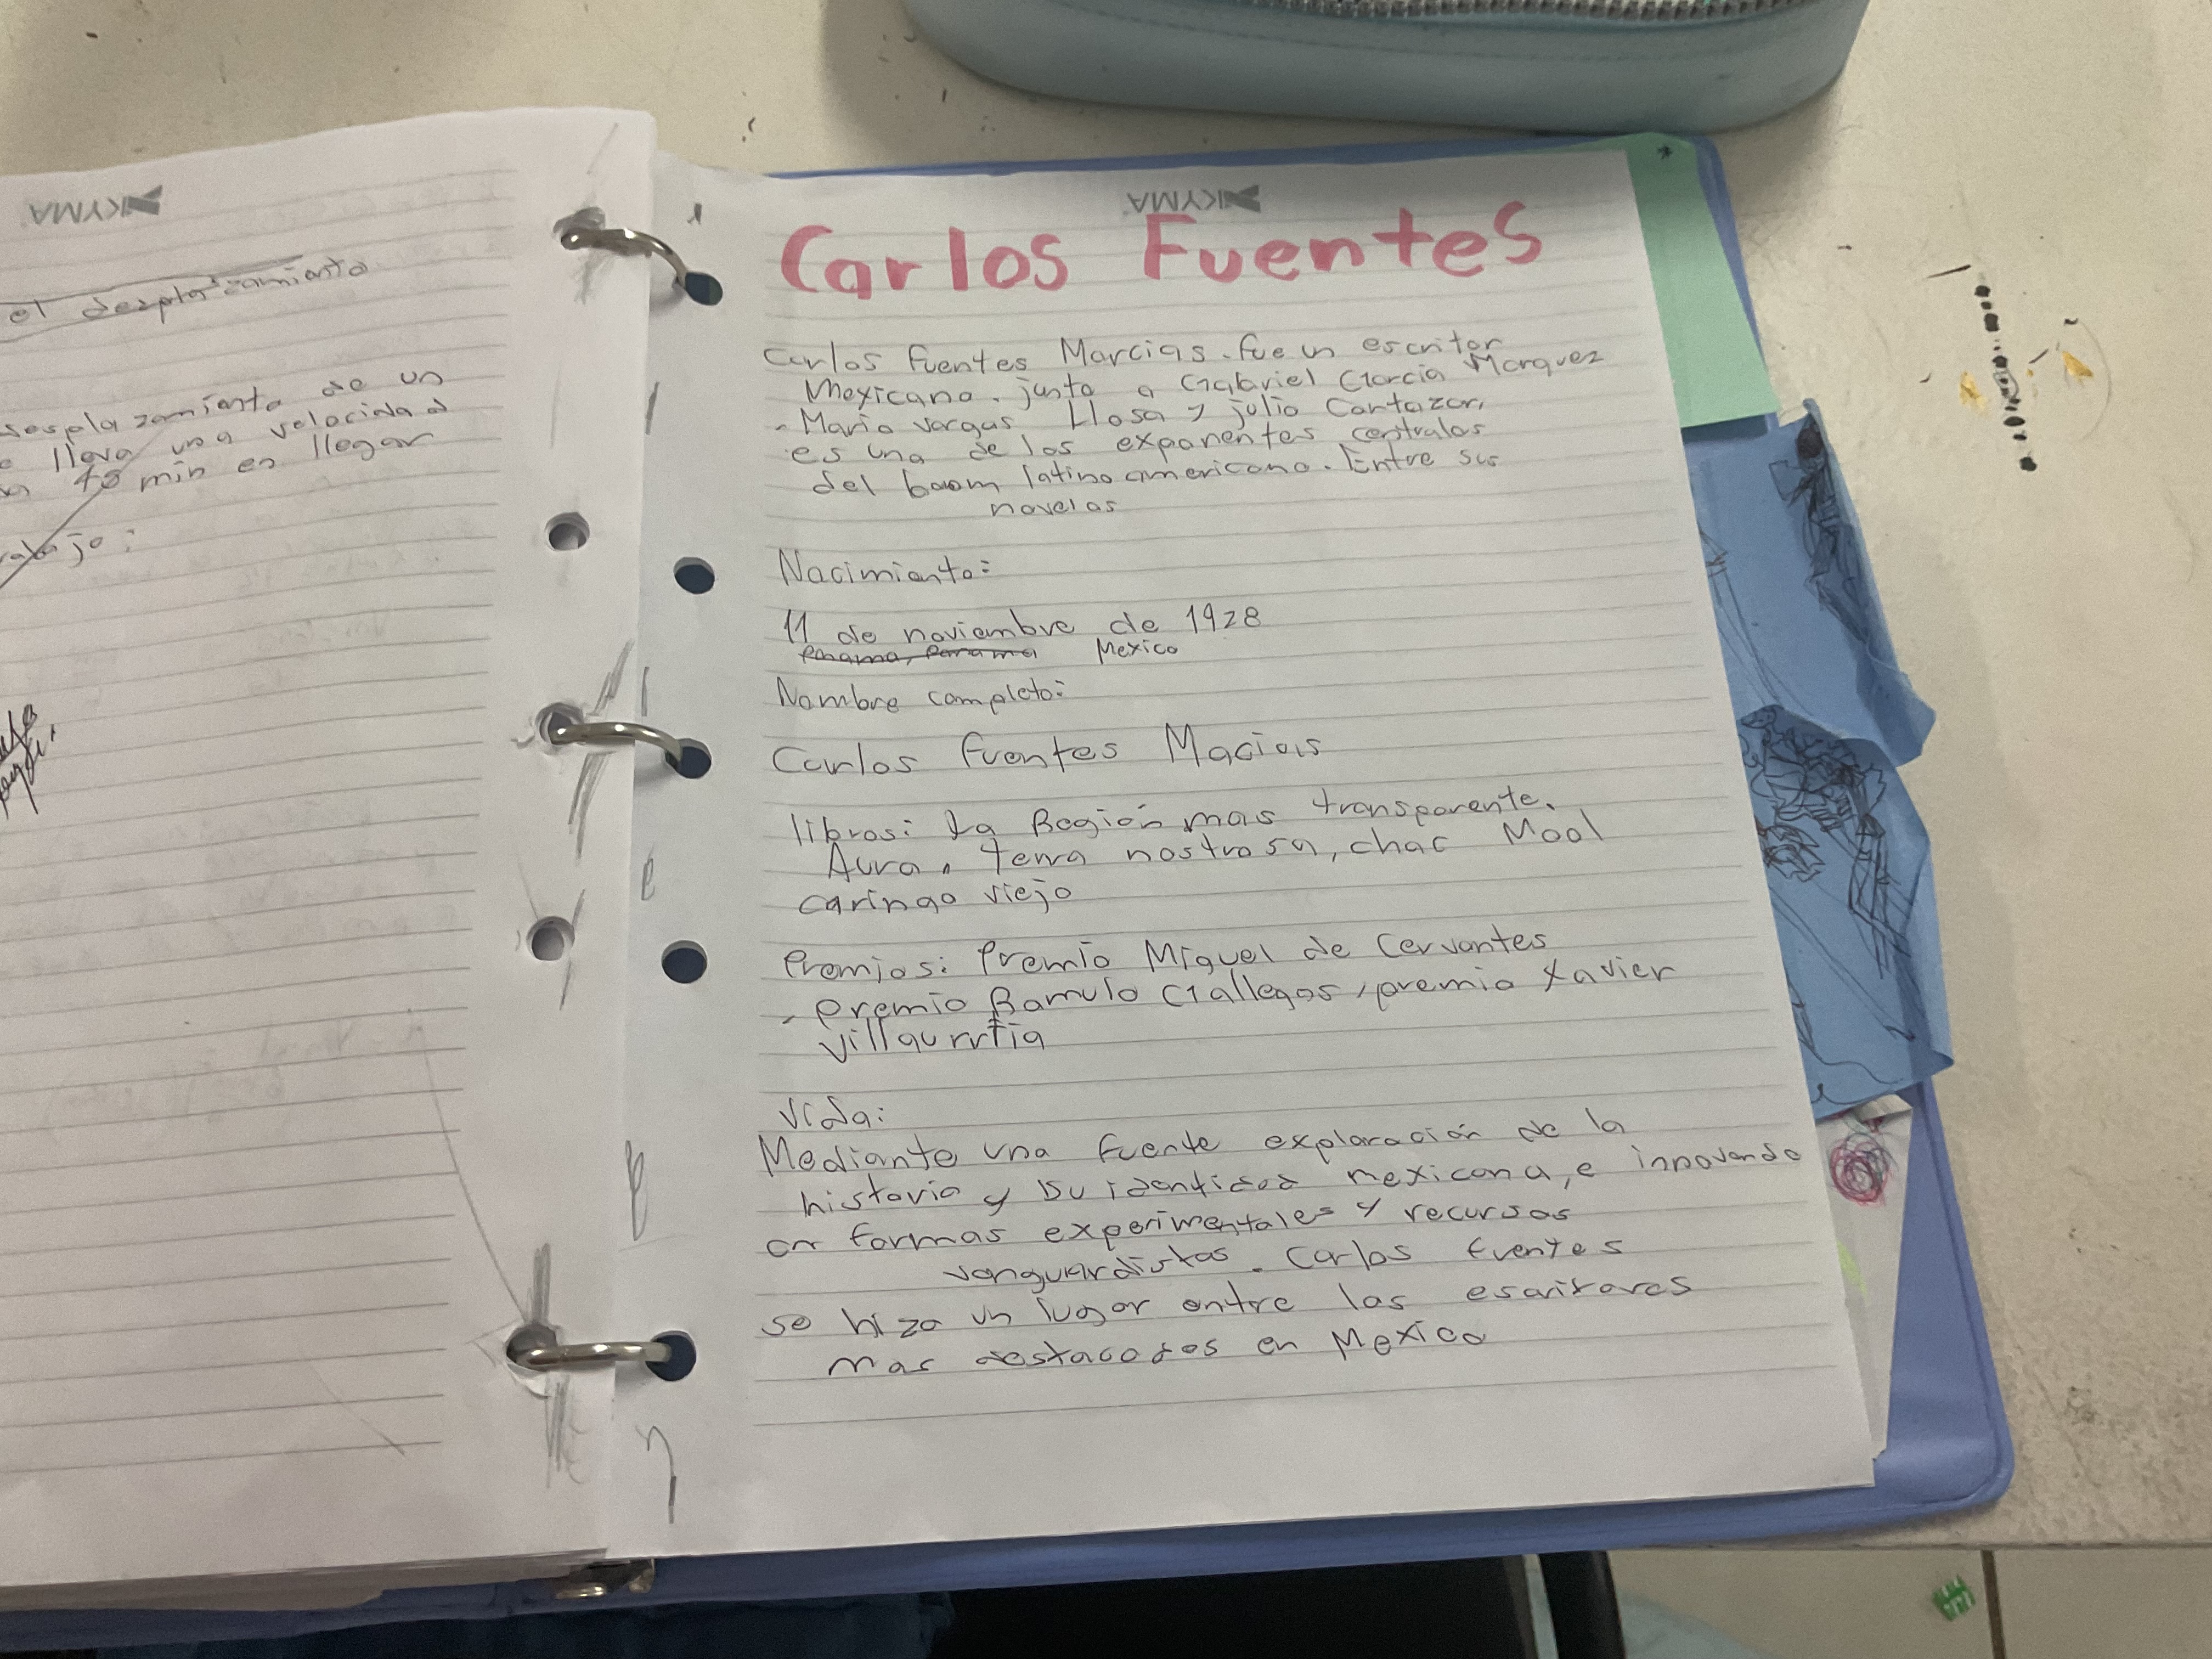 KYMA
el desplazamiento
desplazamiento de un
lleva una velocidad
45 min en llegar
trabajo:
KYMA
Carlos Fuentes
Carlos Fuentes Marcias. fue un escritor
Mexicano. junto a Gabriel Garcia Marquez
- Mario vargas Llosa y julio Cortazar,
es una de los exponentes centrales
del boom latino americano. Entre sus
novelas
Nacimiento:
11 de noviembre de 1928
Panama, Panama Mexico
Nombre completo:
Carlos Fuentes Macias
libros: La Región mas transparente.
Aura, terra nostrosa, chac Mool
caringo viejo
Premios: Premio Miguel de Cervantes
, premio Romulo Gallegos, premio Xavier
Villaurrtia
Vida:
Mediante una fuente exploración de la
historia y su identidad mexicana, e innovando
en formas experimentales y recursos
vanguardistas. Carlos fuentes
se hizo un lugar entre los escritores
mas destacados en Mexico